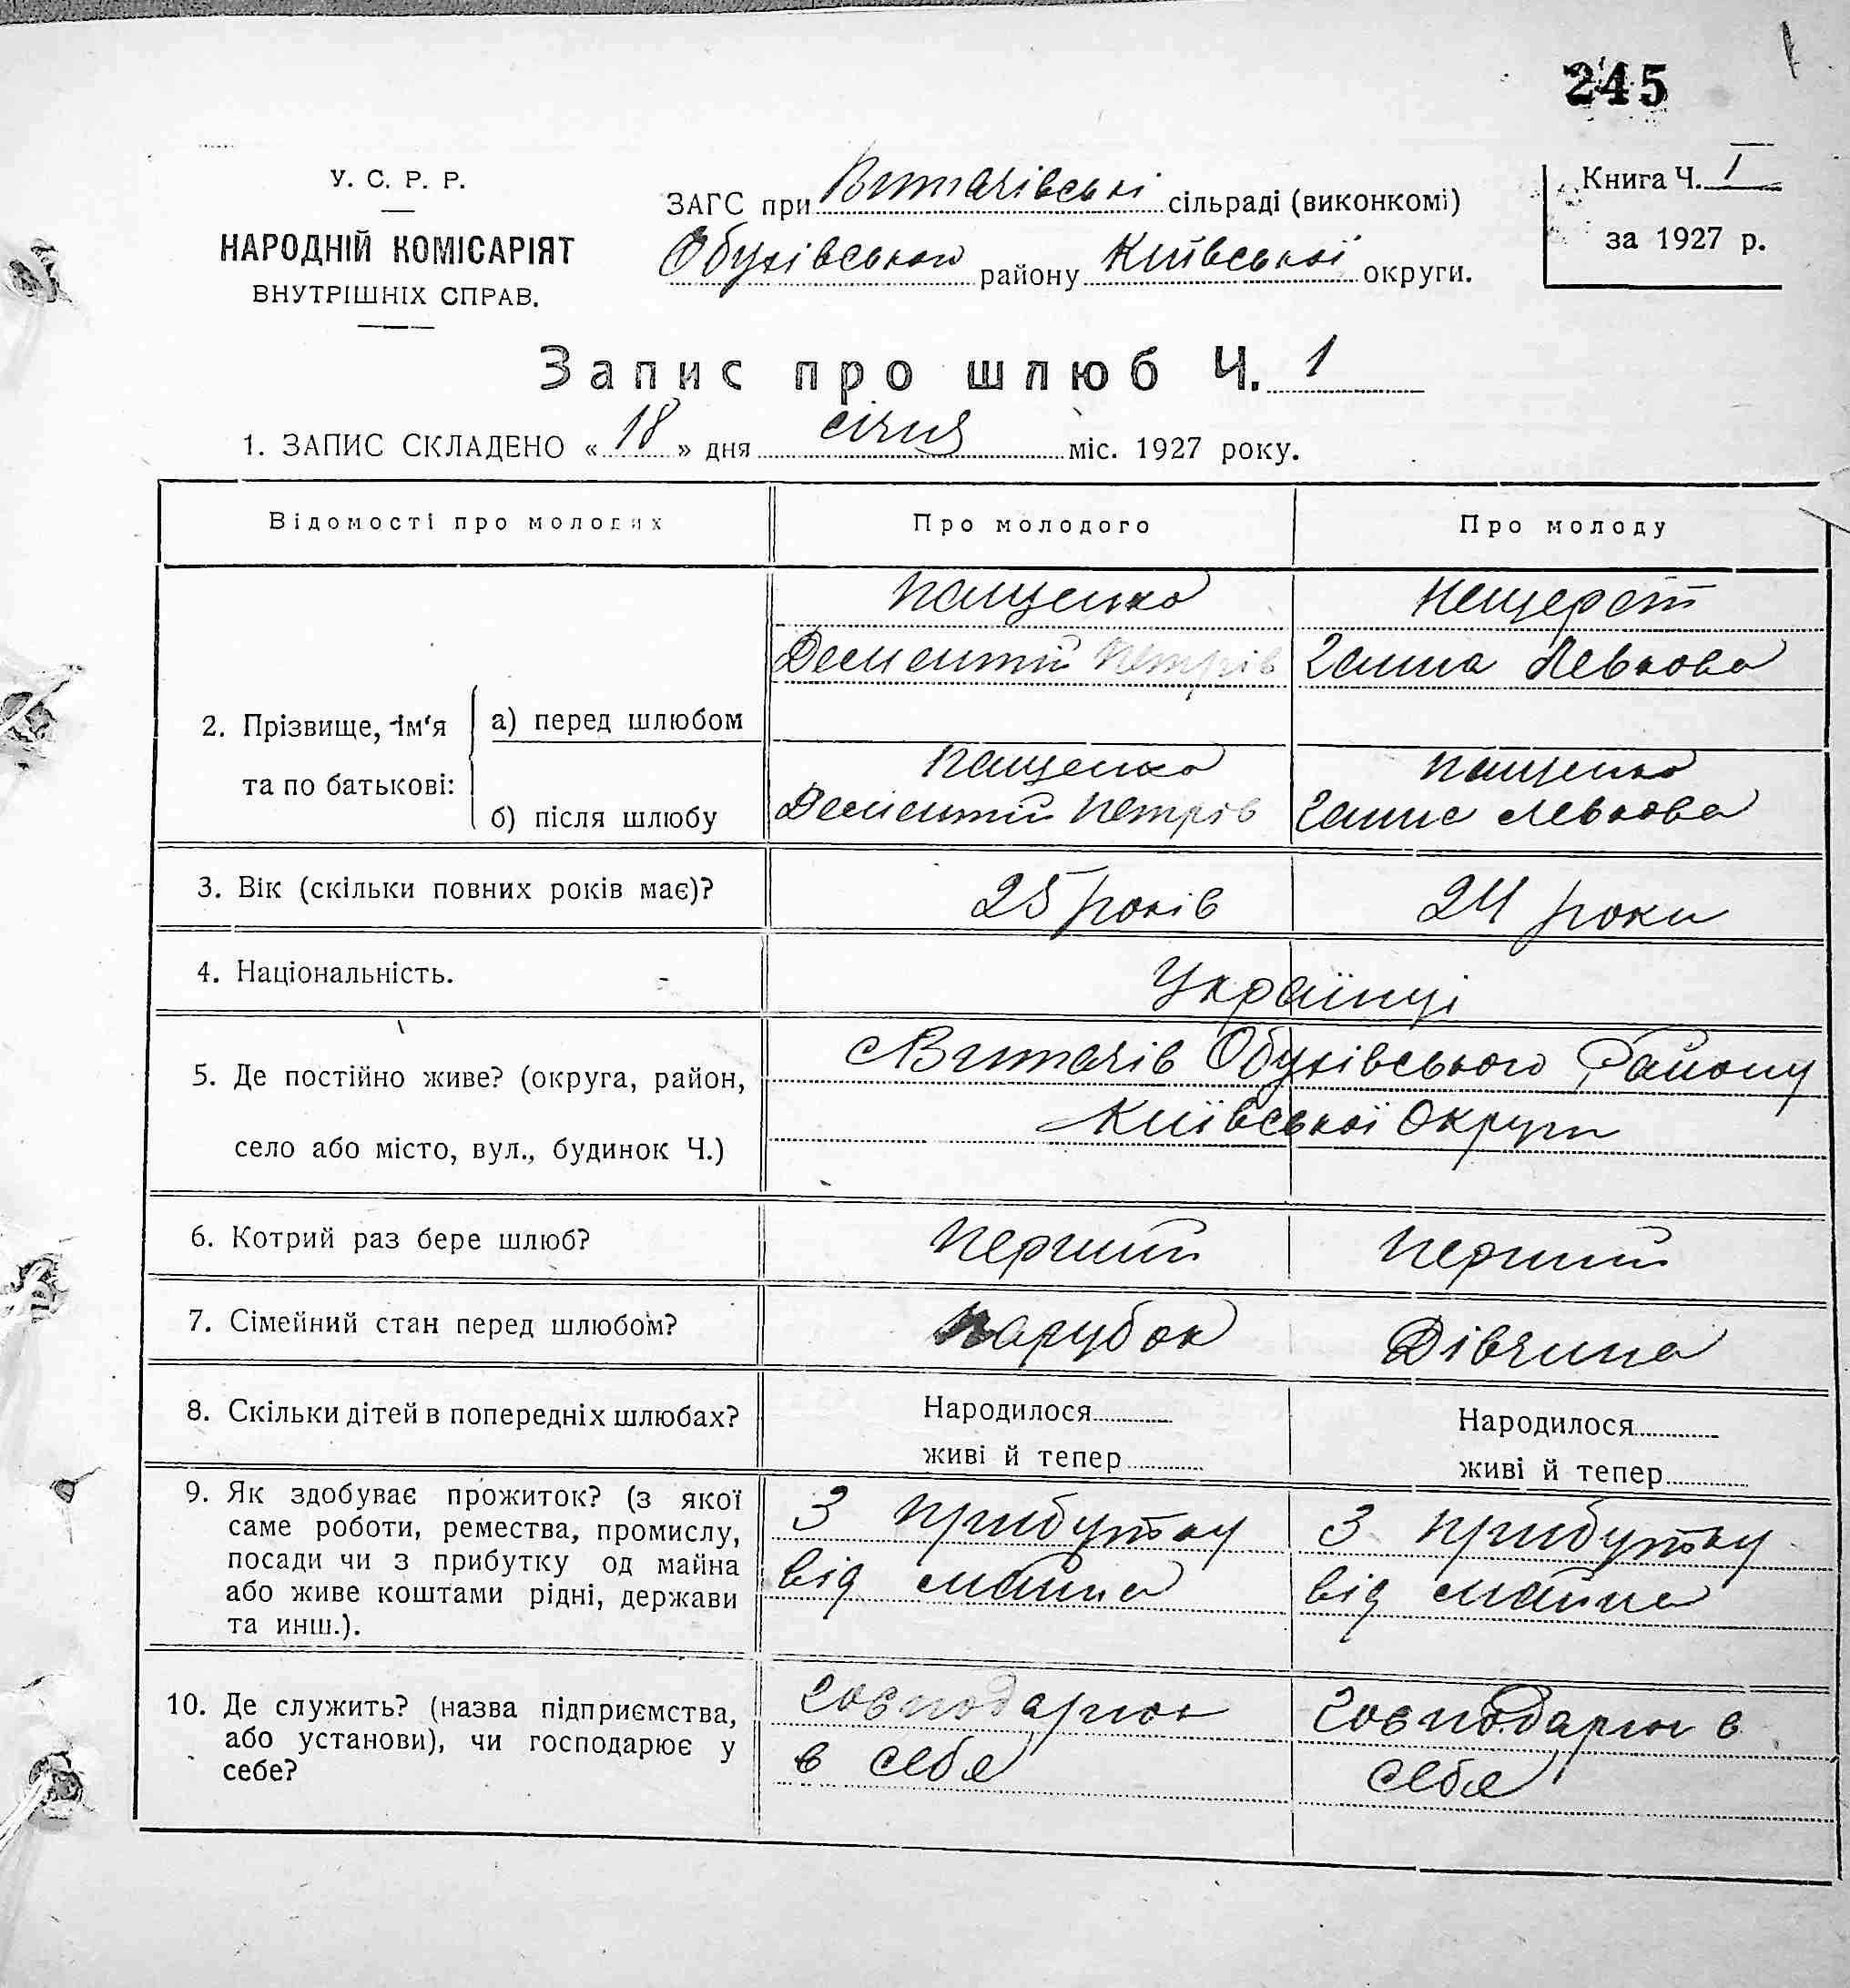 245
У. С. Р. Р.
НАРОДНІЙ КОМІСАРІЯТ
ВНУТРІШНІХ СПРАВ.
ЗАГС при Витачівські сільраді (виконкомі)
Обухівського району Київської округи.
Книга Ч. I
за 1927 р.
Запис про шлюб Ч. 1
1. ЗАПИС СКЛАДЕНО « 18 » дня січня міс. 1927 року.
Відомості про молодих
Про молодого
Про молоду
2. Прізвище, ім‘я
та по батькові:
а) перед шлюбом
Пащенко
Дементій Петрів
Нещерет
Ганна Левкова
б) після шлюбу
Пащенко
Дементій Петрів
Пащенко
Ганна Левкова
3. Вік (скільки повних років має)?
25 років
24 роки
4. Національність.
Українці
5. Де постійно живе? (округа, район,
село або місто, вул., будинок Ч.)
с Витачів Обухівського Району
Київської Округи
6. Котрий раз бере шлюб?
Перший
Перший
7. Сімейний стан перед шлюбом?
Парубок
Дівчина
8. Скільки дітей в попередніх шлюбах?
Народилося
живі й тепер
Народилося
живі й тепер
9. Як здобуває прожиток? (з якої
саме роботи, ремества, промислу,
посади чи з прибутку од майна
або живе коштами рідні, держави
та инш.).
З прибутку
від майна
З прибутку
від майна
10. Де служить? (назва підприємства,
або установи), чи господарює у
себе?
в себе
Господарює в
себе